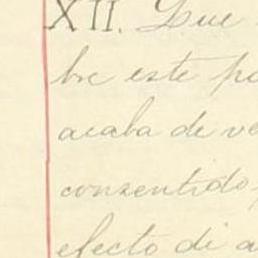 XII. Que
bre este po
acaba de ve
consentido
efecto di a